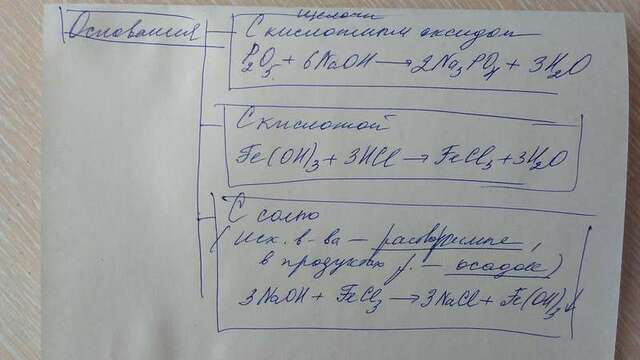 Щелочи
Основания
С кислотным оксидом
P₂O₅ + 6NaOH → 2Na₃PO₄ + 3H₂O
С кислотой
Fe(OH)₃ + 3HCl → FeCl₃ + 3H₂O
С солью
(исх. в-ва – растворимые,
в продуктах р. – осадок)
3NaOH + FeCl₃ → 3NaCl + Fe(OH)₃↓